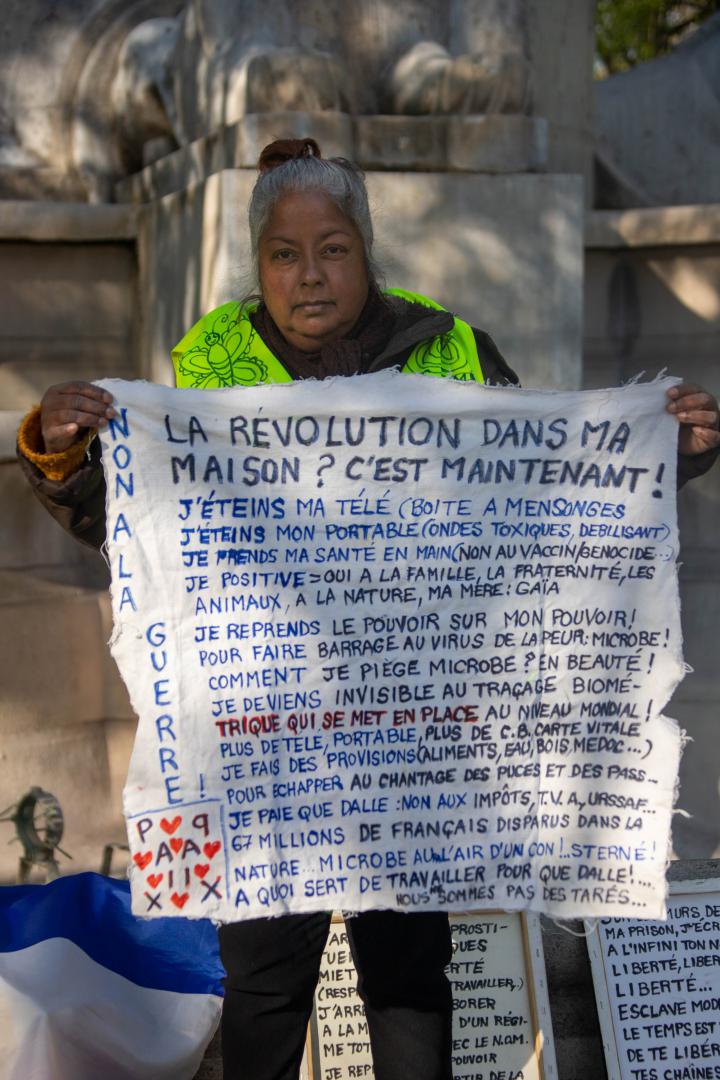 NON A LA GUERRE !
LA RÉVOLUTION DANS MA
MAISON ? C'EST MAINTENANT !
J'ÉTEINS MA TÉLÉ (BOITE A MENSONGES
J'ÉTEINS MON PORTABLE (ONDES TOXIQUES, DEBILISANT)
JE PRENDS MA SANTÉ EN MAIN (NON AU VACCIN/GENOCIDE...)
JE POSITIVE = OUI A LA FAMILLE, LA FRATERNITÉ, LES
ANIMAUX, A LA NATURE, MA MÈRE : GAÏA
JE REPRENDS LE POUVOIR SUR MON POUVOIR !
POUR FAIRE BARRAGE AU VIRUS DE LA PEUR : MICROBE !
COMMENT JE PIÈGE MICROBE ? EN BEAUTÉ !
JE DEVIENS INVISIBLE AU TRAÇAGE BIOMÉ-
TRIQUE QUI SE MET EN PLACE AU NIVEAU MONDIAL !
PLUS DE TELÉ, PORTABLE, PLUS DE C.B. CARTE VITALE
JE FAIS DES PROVISIONS (ALIMENTS, EAU, BOIS, MEDOC...)
POUR ECHAPPER AU CHANTAGE DES PUCES ET DES PASS...
JE PAIE QUE DALLE : NON AUX IMPÔTS, T.V.A., URSSAF...
67 MILLIONS DE FRANÇAIS DISPARUS DANS LA
NATURE... MICROBE AURA L'AIR D'UN CON !.. STERNÉ !
A QUOI SERT DE TRAVAILLER POUR QUE DALLE !....
NOUS NE SOMMES PAS DES TARÉS...
P q
A A
I I
X X
PROSTI-
QUES
MIET
ERTÉ
(RESP
TRAVAILLER,)
J'ARR
BORER
A LA M
D'UN RÉGI-
ME TOT
EC LE N.O.M.
JE REP
POUVOIR
PARTIR DE LA
MURS DE
MA PRISON, J'ÉCR
A L'INFINI TON N
LIBERTÉ, LIBER
LIBERTÉ...
ESCLAVE MOD
LE TEMPS EST
DE TE LIBÉR
TES CHAÎNES